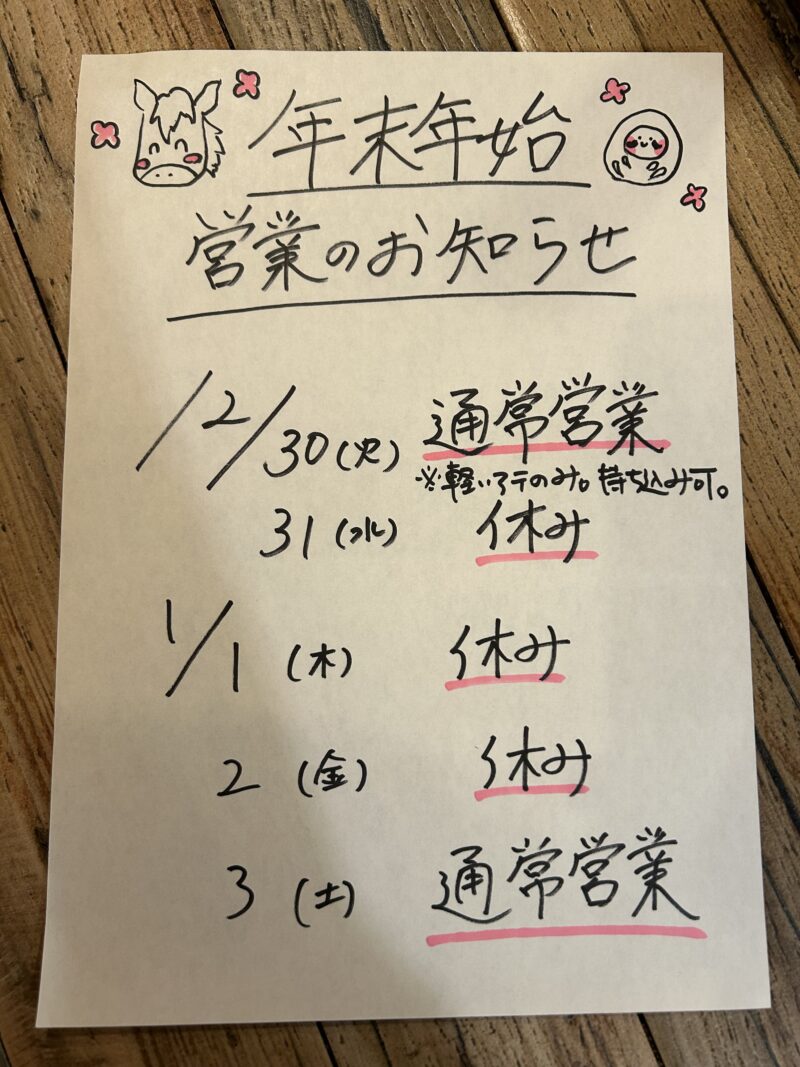 年末年始
営業のお知らせ
12/30(火) 通常営業
※軽いアテのみ。持ち込み可。
31(水) 休み
1/1(木) 休み
2(金) 休み
3(土) 通常営業